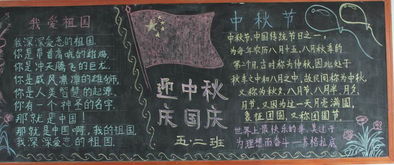 我爱祖国
我深深爱恋的祖国
你是昂首高吭的雄鸡
你是冲天腾飞的巨龙
你是威风凛凛的雄狮
你是人类智慧的起源
你有一个神圣的名字
那就是中国!
那就是中国啊,我的祖国
我深深爱恋的祖国
迎中秋
庆国庆
五·二班
中秋节
中秋节,中国传统节日之一,
为每年农历八月十五,八月秋季的
第二个月,古时称为仲秋,因此处于
秋季之中和八月之中,故民间称为中秋,
又称为秋夕,八月节,八月半,月夕,
月节,又因为这一天月亮满圆,
象征团圆,又称团圆节。
世界上最快乐的事,莫过于
为理想而奋斗